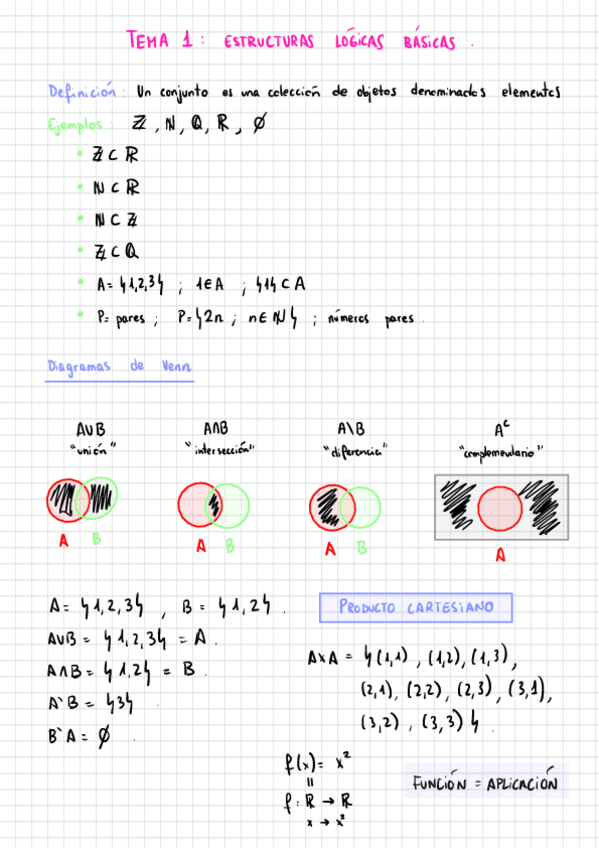 TEMA 1: ESTRUCTURAS LÓGICAS BÁSICAS.
Definición: Un conjunto es una colección de objetos denominados elementos
Ejemplos: ℤ, ℕ, ℚ, ℝ, ∅
• ℤ ⊂ ℝ
• ℕ ⊂ ℝ
• ℕ ⊂ ℤ
• ℤ ⊂ ℚ
• A = {1,2,3} ; 1 ∈ A ; {1} ⊂ A
• P = pares ; P = {2n ; n ∈ ℕ} ; números pares.
Diagramas de Venn
A∪B A∩B A\B Aᶜ
"unión" "intersección" "diferencia" "complementario"
A B A B A B A
A = {1,2,3} , B = {1,2}.
A∪B = {1,2,3} = A.
A∩B = {1,2} = B.
A\B = {3}
B\A = ∅.
PRODUCTO CARTESIANO
A×A = {(1,1), (1,2), (1,3),
(2,1), (2,2), (2,3), (3,1),
(3,2), (3,3)}.
f(x) = x²
=
f: ℝ → ℝ
x → x²
FUNCIÓN = APLICACIÓN